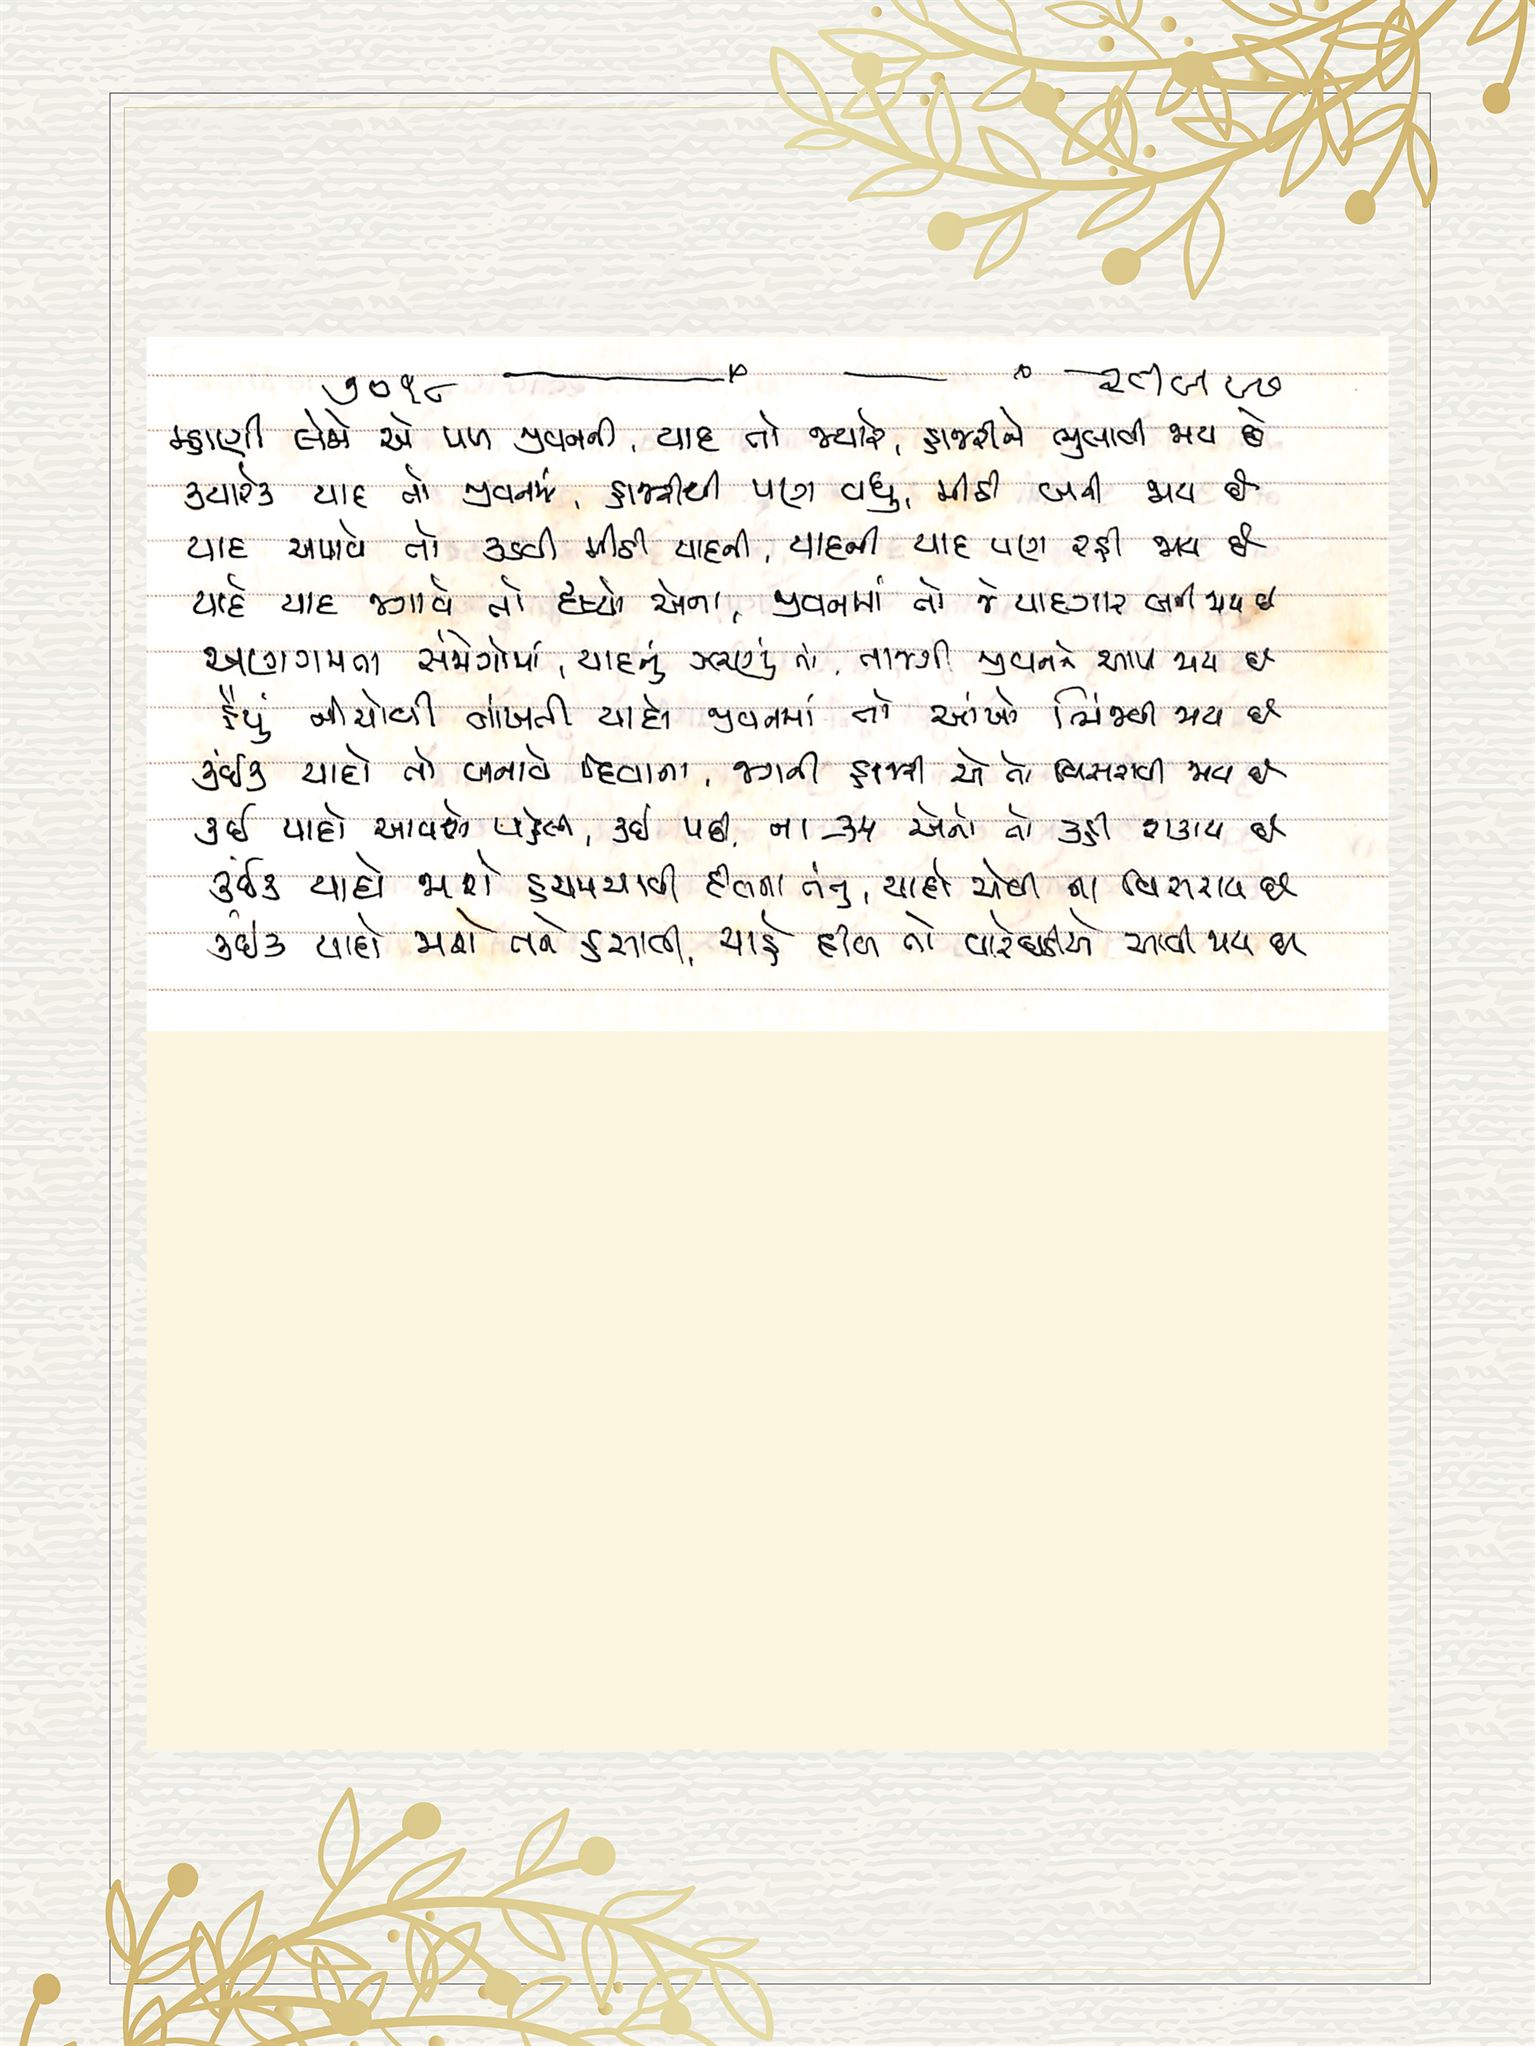 ૭૦૧૮
મ્હાણી લેજે એ પળ જીવનની, યાદ તો જ્યારે, હાજરીને ભુલાવી જાય છે
ક્યારેક યાદ તો જીવનમાં, હાજરીથી પણ વધુ, મીઠી બની જાય છે
યાદ અપાવે તો કડવી મીઠી યાદની, યાદની યાદ પણ રહી જાય છે
યાદે યાદ જગાવે તો દૃશ્યો એના, જીવનમાં તો જે યાદગાર બની જાય છે
અણગમતા સંજોગોમાં, યાદનું ઝરણું તો, તાજગી જીવનને આપી જાય છે
હૈયું નીચોવી નાંખતી યાદો જીવનમાં તો આંખો ભિંજવી જાય છે
કંઈક યાદો તો બનાવે દિવાના, જગની હાજરી એ તો વિસરાવી જાય છે
કઈ યાદો આવશે પહેલી, કઈ પછી, ના ક્રમ એનો તો કહી શકાય છે
કંઈક યાદો જાશે હચમચાવી દીલના તંતુ, યાદો એવી ના વિસરાય છે
કંઈક યાદો જાશે તને હસાવી, યાદે દીલ તો વારેઘડીએ આવી જાય છે